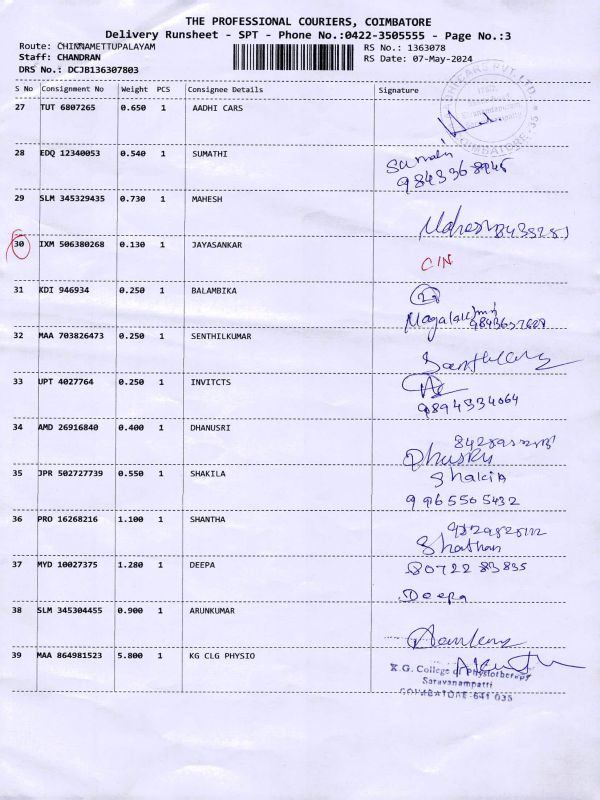 THE PROFESSIONAL COURIERS, COIMBATORE
Delivery Runsheet - SPT - Phone No.:0422-3505555 - Page No.:3
Route: CHINNAMETTUPALAYAM
RS No.: 1363078
Staff: CHANDRAN
RS Date: 07-May-2024
DRS No.: DCJB136307803
S No Consignment No Weight PCS Consignee Details Signature
27 TUT 6807265 0.650 1 AADHI CARS
28 EDQ 12340053 0.540 1 SUMATHI
Sumathi
29 SLM 345329435 0.730 1 MAHESH
Mahesh
30 IXM 506380268 0.130 1 JAYASANKAR
C/N
31 KDI 946934 0.250 1 BALAMBIKA
32 MAA 703826473 0.250 1 SENTHILKUMAR
33 UPT 4027764 0.250 1 INVITCTS
9894334064
34 AMD 26916840 0.400 1 DHANUSRI
35 JPR 502727739 0.550 1 SHAKILA
ShakilA
9965505432
36 PRO 16268216 1.100 1 SHANTHA
37 MYD 10027375 1.280 1 DEEPA
80722 83835
Deepa
38 SLM 345304455 0.900 1 ARUNKUMAR
39 MAA 864981523 5.800 1 KG CLG PHYSIO
K.G. College of Physiotherapy
Saravanampatti
COIMBATORE-641 035